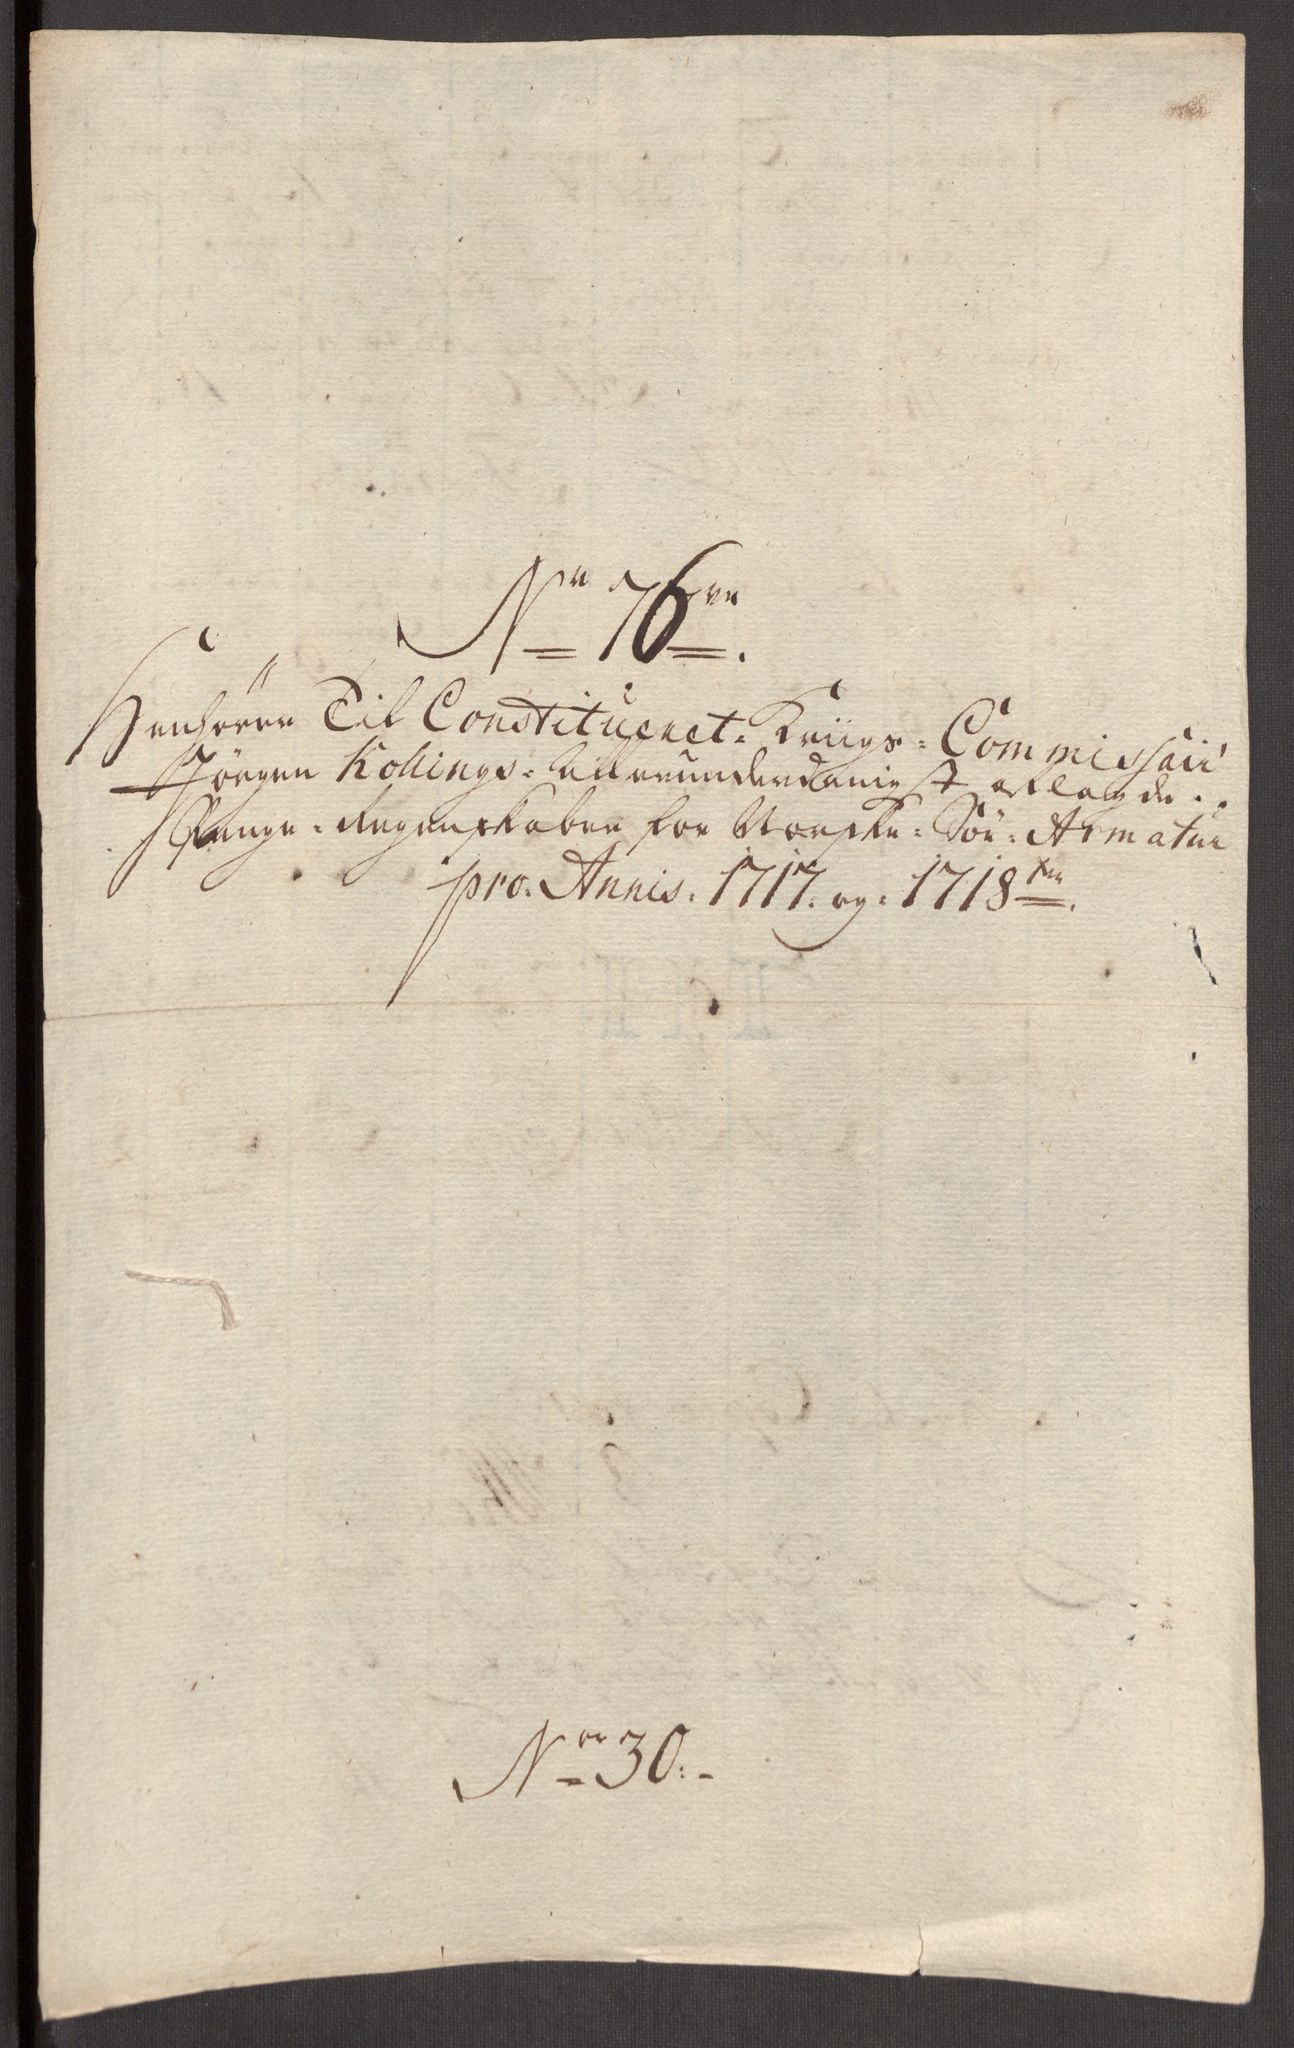 No 76.
Henhörer Til Constitueret. Kriigs= Commissair
Jörgen Kollings= Allerunderdanigst aflagde..
Penge= Regenskaber for Norske= Söe= Armatur
pro. Annis. 1717. og. 1718.
No 30.